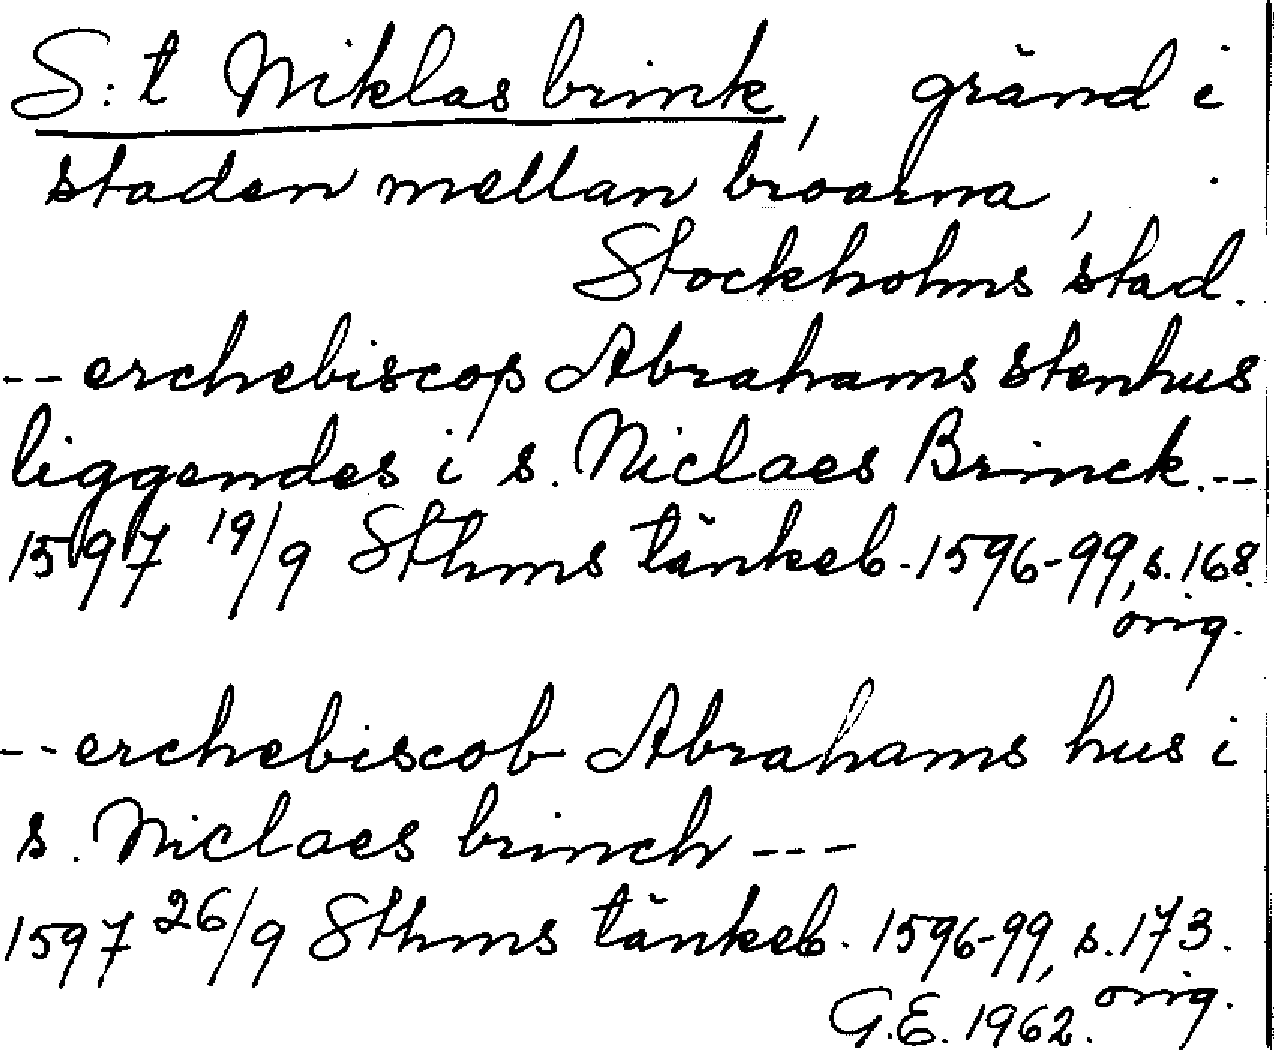 S:t Niklas brink, gränd i
staden mellan broarna,
Stockholms stad.
-- erchebiscop Abrahams stenhus
liggendes i s. Niclaes Brinck. --
1597 19/9 Sthms tänkeb. 1596-99, s. 168.
orig.
-- erchebiscob Abrahams hus i
s. Niclaes brinch ---
1597 26/9 Sthms tänkeb. 1596-99, s. 173.
orig.
G.E. 1962.